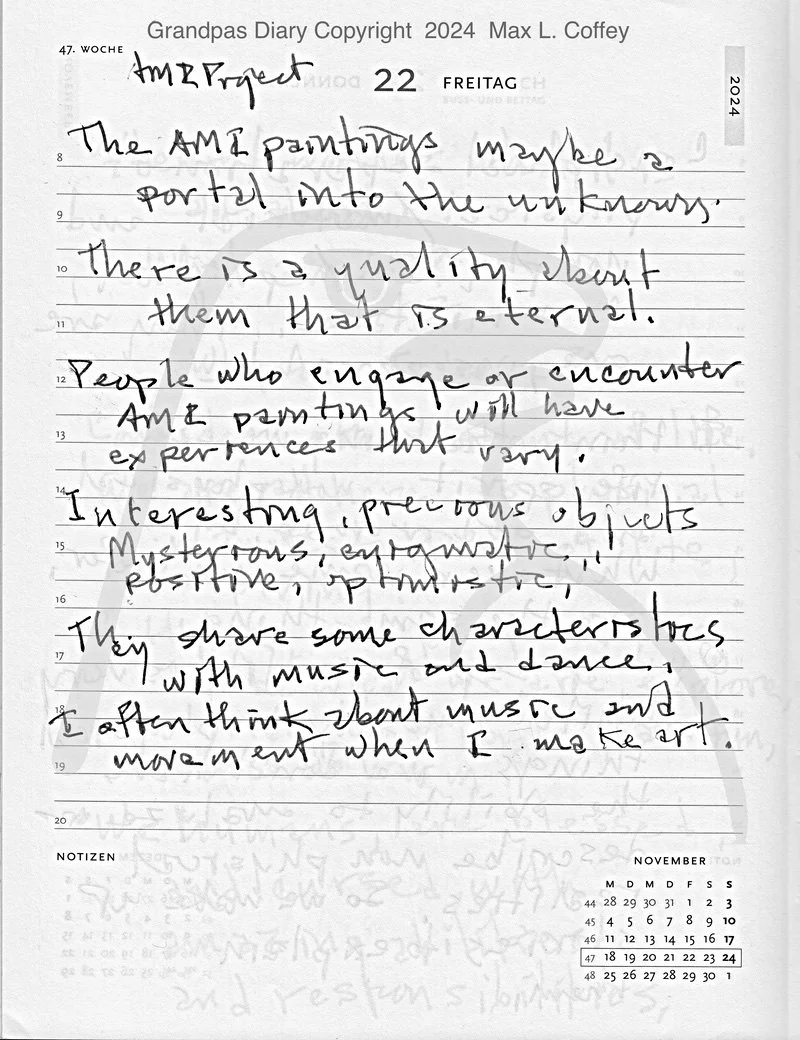 Grandpas Diary Copyright 2024 Max L. Coffey
47. WOCHE
AMI Project
22 FREITAG
2024
The AMI paintings maybe a
8
portal into the unknown.
9
There is a quality about
10
them that is eternal.
11
People who engage or encounter
12
AMI paintings will have
experiences that vary.
13
14
Interesting, precious objects
Mysterious, enigmatic,
15
positive, optimistic,
16
They share some characteristics
17
with music and dance.
18
I often think about music and
movement when I make art.
19
20
NOTIZEN
NOVEMBER
M D M D F S S
44 28 29 30 31 1 2 3
45 4 5 6 7 8 9 10
46 11 12 13 14 15 16 17
47 18 19 20 21 22 23 24
48 25 26 27 28 29 30 1